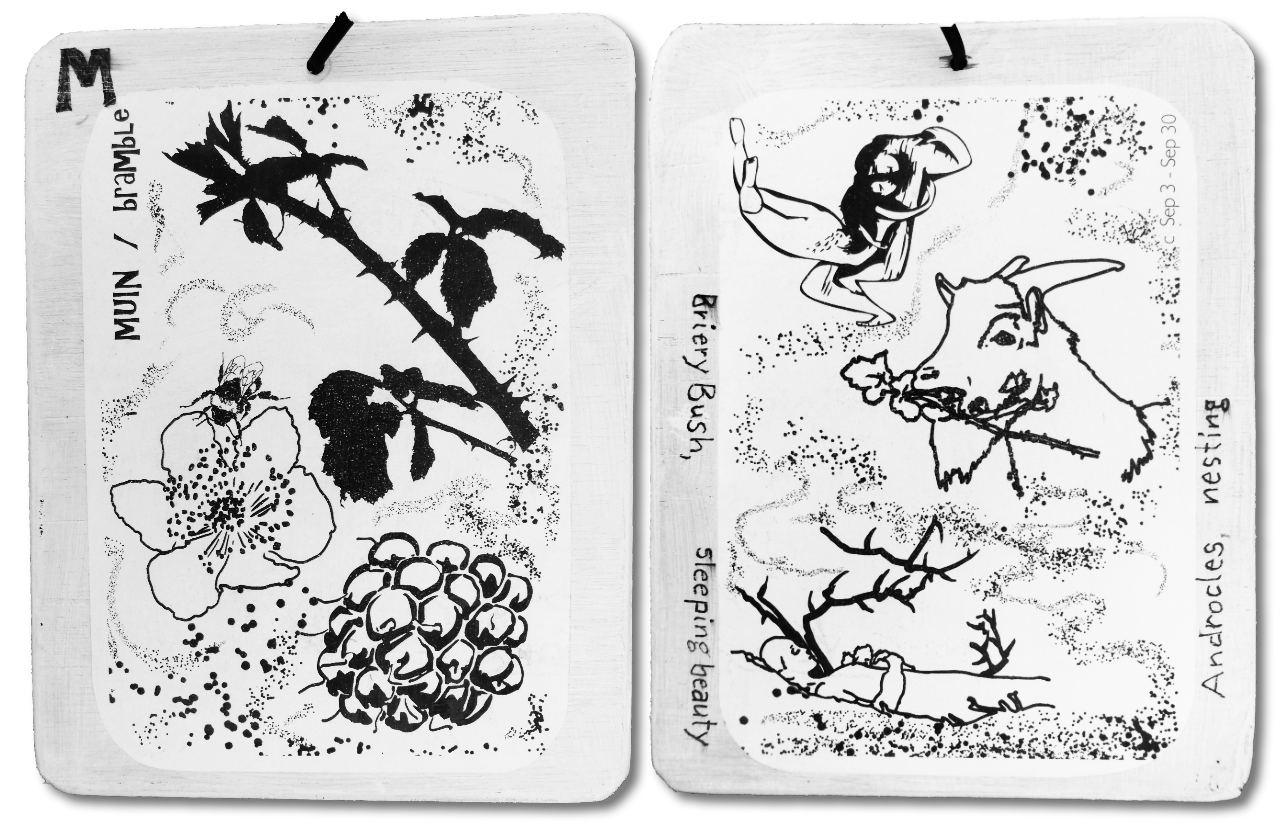 M
MUIN / bramble
Briery Bush,
sleeping beauty
c Sep 3 - Sep 30
Androcles, nesting